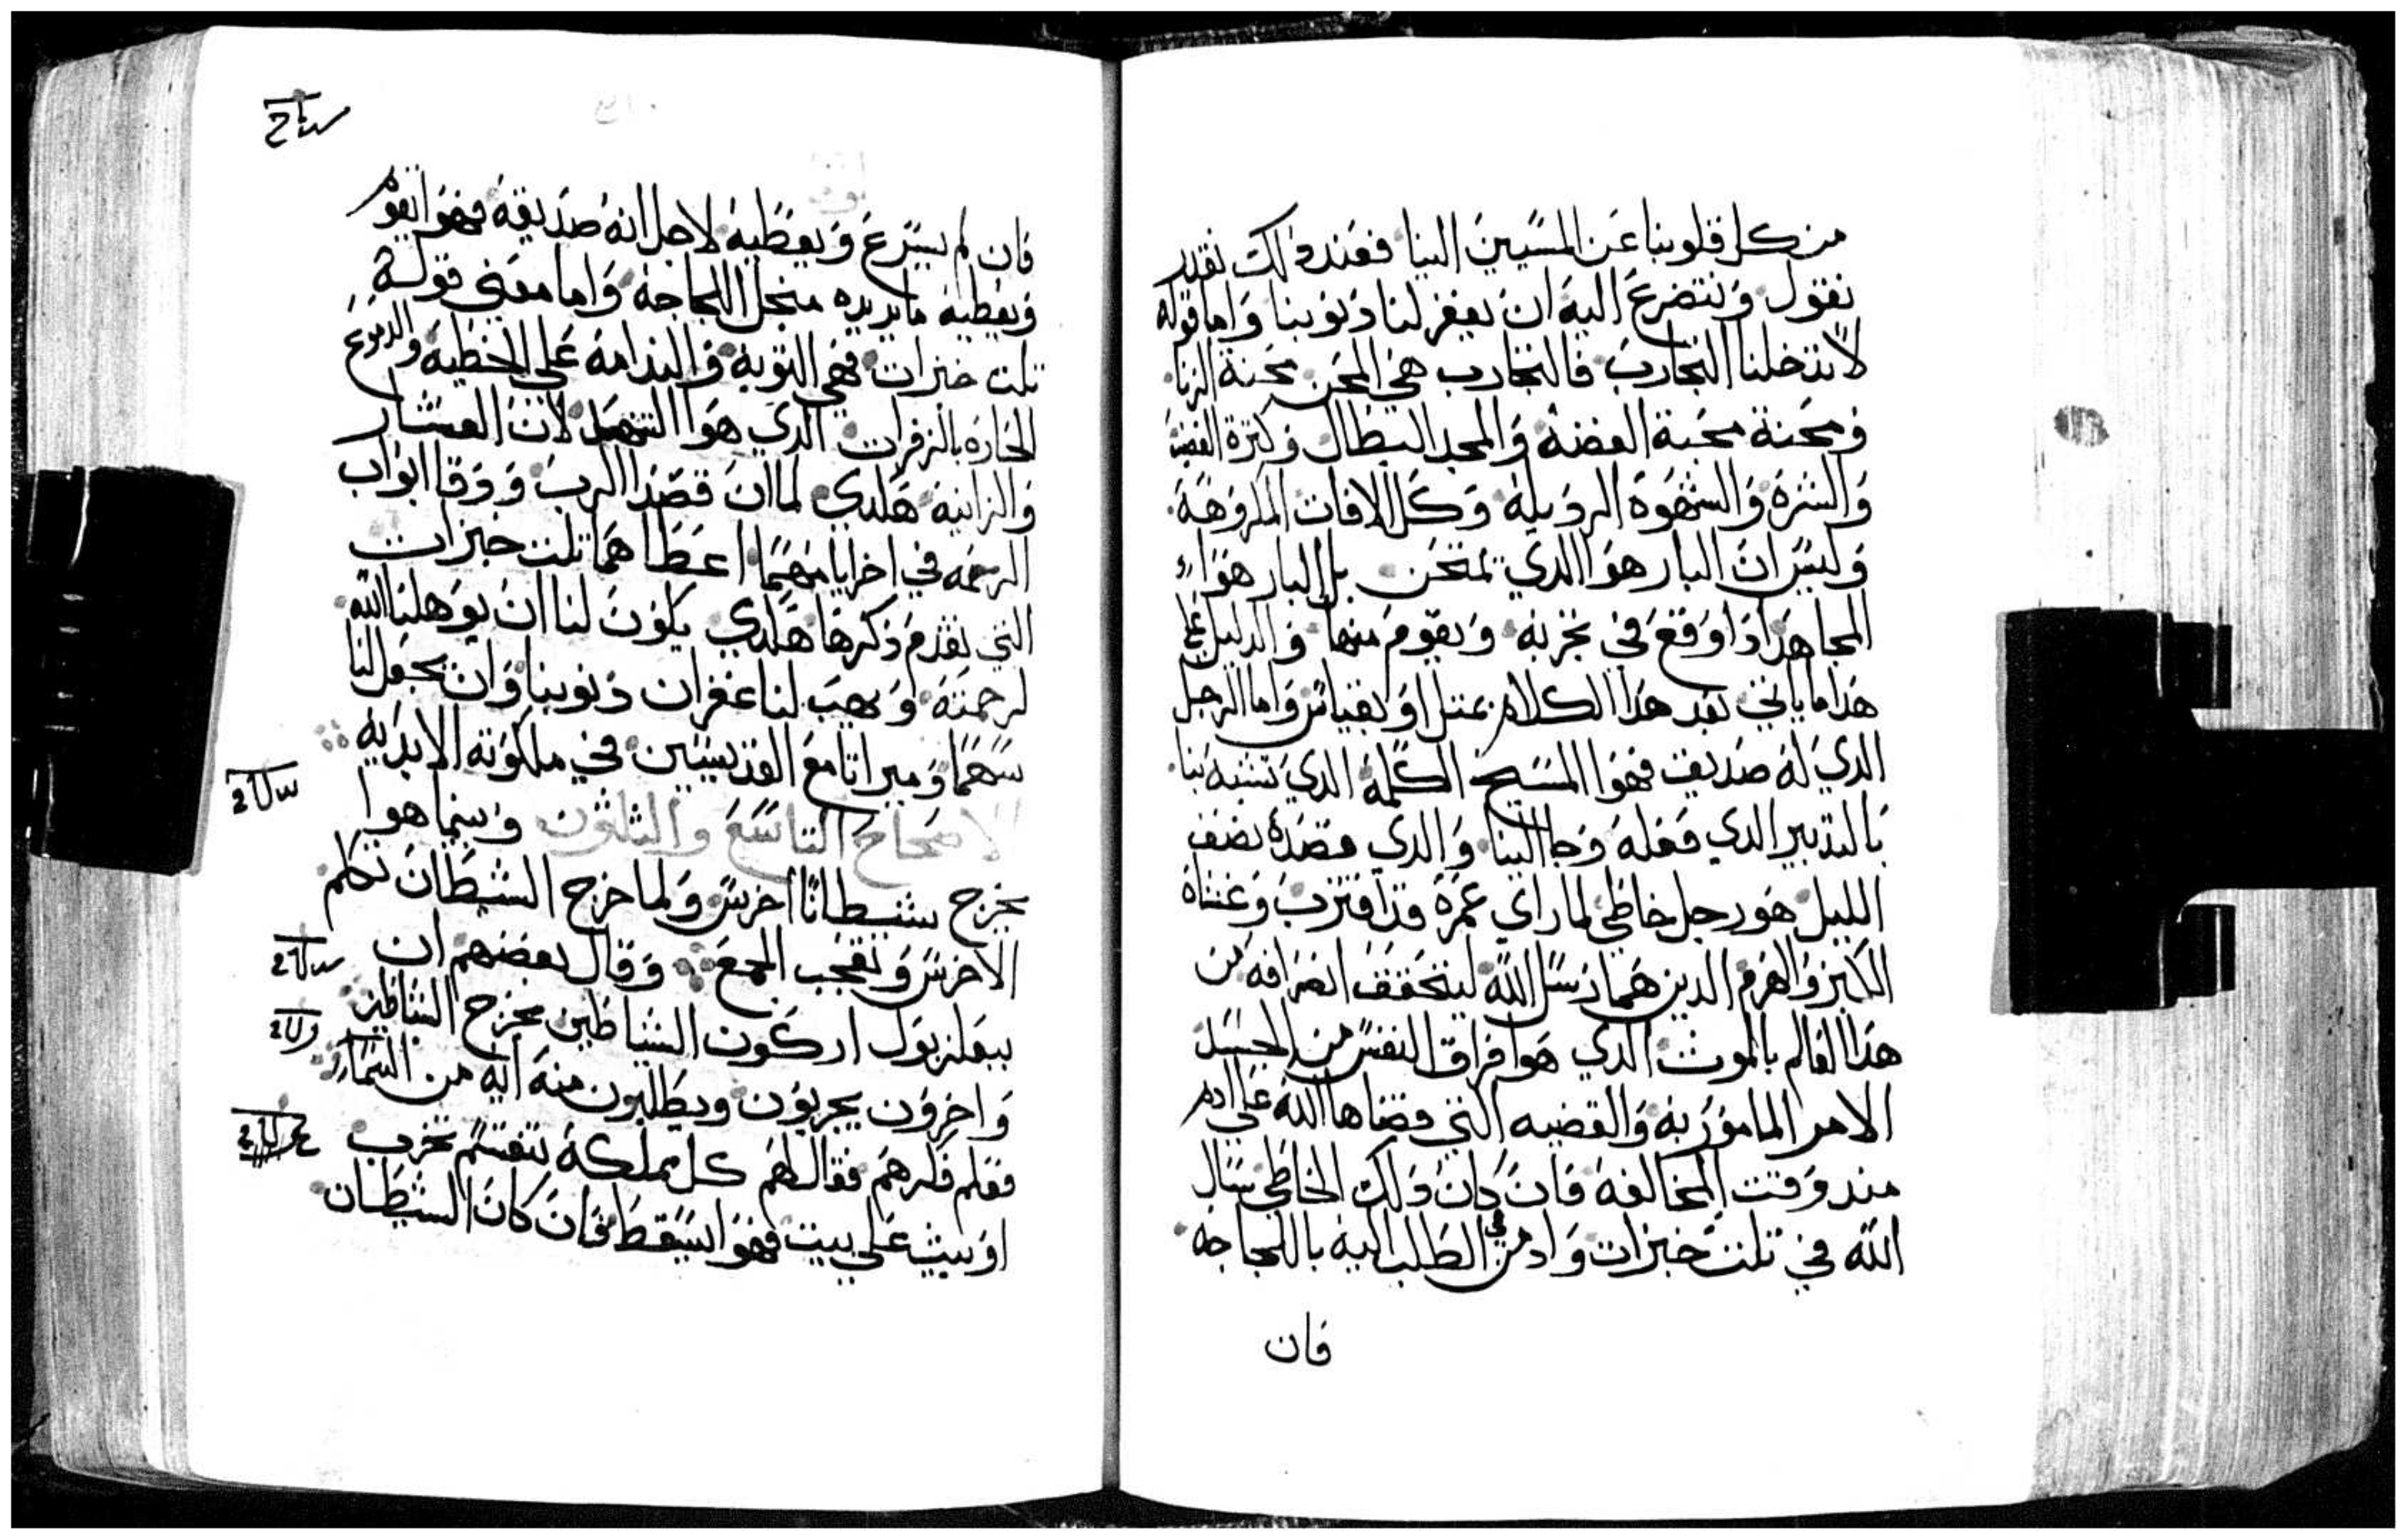 من كل قلوبنا عن المسيين الينا فعند دالك نقدر
نقول ونتضرع اليه ان يغفر لنا دنوبنا واما قوله
لا تدخلنا التجارب فالتجارب هي المحن محنة الزنا
ومحنة محبة الفضه والمجد البطال وكترة القنية
والشره والشهوه الرديله وكل الافات المكروهة
وليس ان البار هو الدي يمتحن بل البار هوا
المجاهد ادا وقع في تجربه ويقوم منها والدليل علي
هدا ما ياتي بعد هدا الكلام بمتل او بقياس واما الرجل
الدي له صديق فهوا المسيح الكلمة الدي تشبه بنا
بالتدبير الدي فعله وجا الينا والدي قصده نصف
الليل هو رجل خاطي لما راي عمره قد اقترب وغشاه
الكبر والهرم الدين هما رسل الله ليتحقق انصرافه من
هدا العالم بالموت الدي هوا فراق النفس من الجسد
الامر المامور به والقضيه التي قضاها الله علي ادم
مند وقت المخالفه فان كان دلك الخاطي سال
الله في تلت خبزات وادمن في الطلب اليه باللجاجه
فان
فان لم يسرع ويعطيه لاجل انه صديقه فهوا يقوم
ويعطيه ما يريده منجل اللجاجه واما معني قوله
تلت خبزات فهي التوبه والندامه علي الخطيه والدموع
الحاره بالزفرات الدي هوا التنهد لان العشار
والزانيه هكدي لما ان قصدا الرب ودقا ابواب
الرحمه في اخر ايامهما اعطاهما تلت خبزات
التي تقدم دكرها هكدي يكون لنا ان يوهلنا الله
لرحمته ويهب لنا غفران دنوبنا وان يجعل لنا
سهما وميراتا مع القديسين في ملكوته الابديه
الاصحاح التاسع والتلتون وبينما هوا
يخرج شيطانا اخرس ولما خرج الشيطان تكلم
الاخرس وتعجب الجمع وقال بعضهم ان
ببعلزبول اركون الشياطين يخرج الشياطين
واخرون يجربون ويطلبون منه ايه من السما
فعلم فكرهم فقال لهم كل مملكة تنقسم تخرب
او بيت علي بيت فهوا يسقط فان كان الشيطان